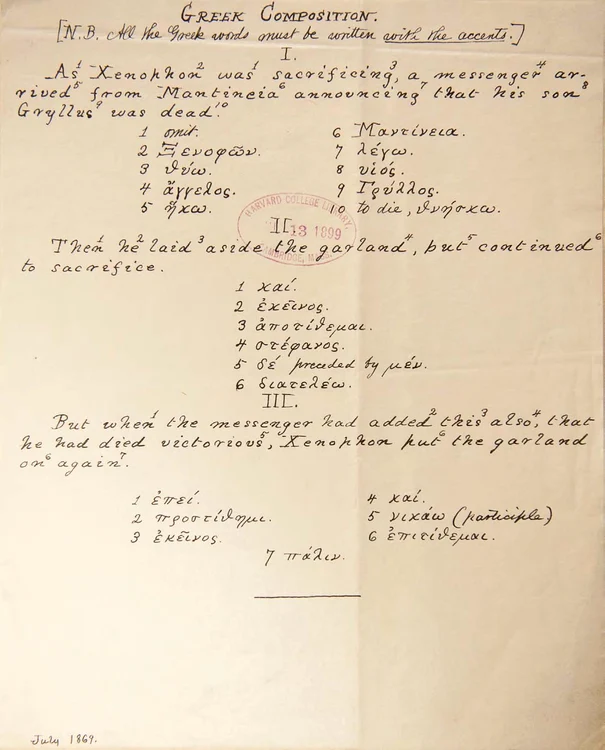 GREEK COMPOSITION.
[N.B. All the Greek words must be written with the accents.]
I.
As¹ Xenophon² was¹ sacrificing,³ a messenger⁴ ar-
rived⁵ from Mantineia⁶ announcing⁷ that his son⁸
Gryllus⁹ was dead.¹⁰
1 omit. 6 Μαντίνεια.
2 Ξενοφῶν. 7 λέγω.
3 θύω. 8 υἱός.
4 ἄγγελος. 9 Γρύλλος.
5 ἥκω. 10 to die, θνήσκω.
HARVARD COLLEGE LIBRARY
II.
13 1899
CAMBRIDGE, MASS.
Then¹ he² laid³ aside the garland⁴, but⁵ continued⁶
to sacrifice.
1 καί.
2 ἐκεῖνος.
3 ἀποτίθεμαι.
4 στέφανος.
5 δέ preceded by μέν.
6 διατελέω.
III.
But when¹ the messenger had added² this³ also,⁴ that
he had died victorious,⁵ Xenophon put⁶ the garland
on⁶ again⁷.
1 ἐπεί. 4 καί.
2 προστίθημι. 5 νικάω (participle)
3 ἐκεῖνος. 6 ἐπιτίθεμαι.
7 πάλιν.
July 1869.